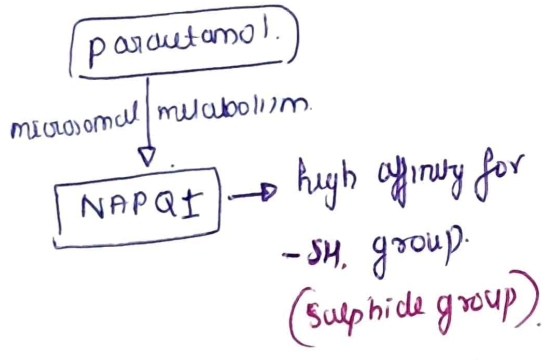 paracetamol.
microsomal metabolism.
NAPQI → high affinity for
-SH. group.
(sulphide group).